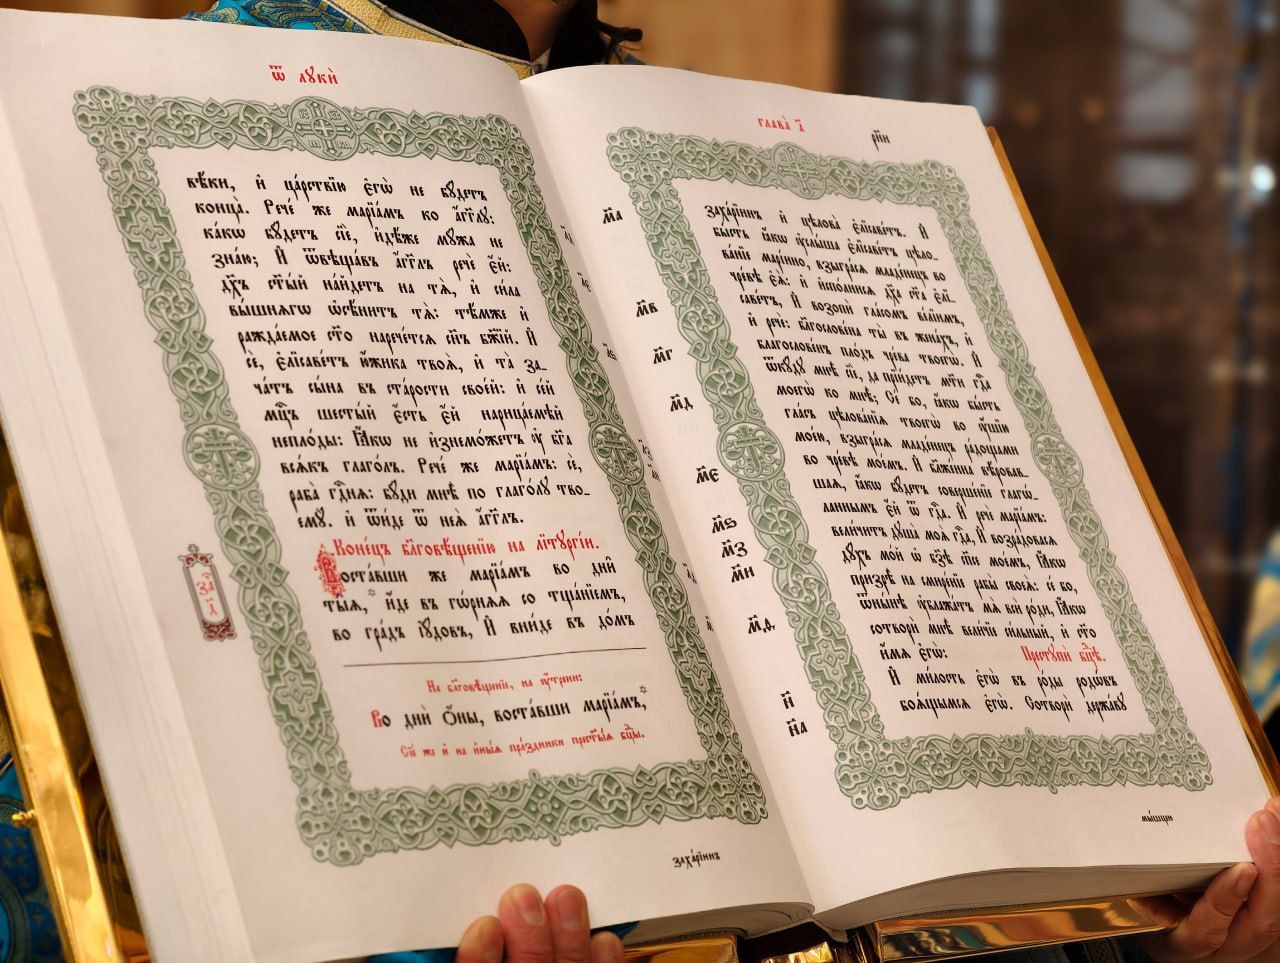 ѿ лꙋкѝ
вѣ́ки, и҆ ца́рствїю є҆гѡ̀ не бꙋ́детъ
конца̀. Рече́ же марїа́мъ ко а҆́гг҃лꙋ:
ка́кѡ бꙋ́детъ сїѐ, и҆дѣ́же мꙋ́жа не
зна́ю; И҆ ѿвѣща́въ а҆́гг҃лъ речѐ є҆́й:
дх҃ъ ст҃ы́й на́йдетъ на тѧ̀, и҆ си́ла
вы́шнѧгѡ ѡ҆сѣни́тъ тѧ̀: тѣ́мже и҆
ражда́емое ст҃о нарече́тсѧ сн҃ъ бж҃їй. И҆
сѐ, є҆лїсаве́тъ ю҆́жика твоѧ̀, и҆ та̀ за-
ча́тъ сы́на въ ста́рости свое́й: и҆ се́й
мц҃ъ шесты́й є҆́сть є҆́й нарица́емѣй
непло́ды: Ꙗ҆́кѡ не и҆знемо́жетъ ᲂу҆ бг҃а
всѧ́къ глаго́лъ. Рече́ же марїа́мъ: сѐ,
раба̀ гдⷭ҇нѧ: бꙋ́ди мнѣ̀ по глаго́лꙋ тво-
емꙋ̀. и҆ ѿи́де ѿ неѧ̀ а҆́гг҃лъ.
Коне́цъ бл҃говѣ́щенїю на лїтꙋргі́и.
Воста́вши же марїа́мъ во дни̑
ты̑ѧ, * и҆́де въ гѡ́рнѧѧ со тща́нїемъ,
во гра́дъ і҆ꙋ́довъ, И҆ вни́де въ до́мъ
за҃ч д҃
На бл҃говѣ́щенїе, на ᲂу҆́трени:
Во дни̑ ѡ҆́ны, воста́вши марїа́мъ,*
Сїе́ же и҆ на и҆ны̑ѧ пра́здники прест҃ы́ѧ бц҃ы.
заха́рїинъ
глава̀ а҃
рн҃и
заха́рїинъ и҆ цѣлова̀ є҆лїсаве́тъ. И҆
бы́сть ꙗ҆́кѡ ᲂу҆слы́ша є҆лїсаве́тъ цѣло-
ва́нїе марі́ино, взыгра́сѧ младе́нецъ во
чре́вѣ є҆ѧ̀: и҆ и҆спо́лнисѧ дх҃а ст҃а є҆лї-
саве́тъ, И҆ возопѝ гла́сомъ ве́лїимъ,
и҆ речѐ: бл҃гослове́на ты̀ въ жена́хъ, и҆
благослове́нъ пло́дъ чре́ва твоегѡ̀. И҆
ѿкꙋ́дꙋ мнѣ̀ сїѐ, да прїи́детъ мт҃и гдⷭ҇а
моегѡ̀ ко мнѣ̀; Се́ бо, ꙗ҆́кѡ бы́сть
гла́съ цѣлова́нїѧ твоегѡ̀ во ᲂу҆́шїю
мое́ю, взыгра́сѧ младе́нецъ ра́дощами
во чре́вѣ мое́мъ. И҆ бл҃же́нна вѣ́ровав-
шаѧ, ꙗ҆́кѡ бꙋ́детъ соверше́нїе глагѡ́-
ланнымъ є҆́й ѿ гдⷭ҇а. И҆ речѐ марїа́мъ:
вели́читъ дꙋша̀ моѧ̀ гдⷭ҇а, И҆ возра́довасѧ
дꙋ́хъ мо́й ѡ҆ бз҃ѣ сп҃сѣ мое́мъ, Ꙗ҆́кѡ
призрѣ̀ на смире́нїе рабы̀ своеѧ̀: се́ бо,
ѿнн҃ѣ ᲂу҆блажа́тъ мѧ̀ всѝ ро́ди, Ꙗ҆́кѡ
сотворѝ мнѣ̀ вели́чїе си́льный, и҆ ст҃о
и҆́мѧ є҆гѡ̀: Престꙋпѝ бц҃ѣ.
И҆ ми́лость є҆гѡ̀ въ ро́ды родѡ́въ
боѧ́щымсѧ є҆гѡ̀. Сотворѝ держа́вꙋ
м҃а
м҃в
м҃г
м҃д
м҃є
м҃ѕ
м҃з
м҃и
м҃ѳ
н҃
н҃а
мы́шцею